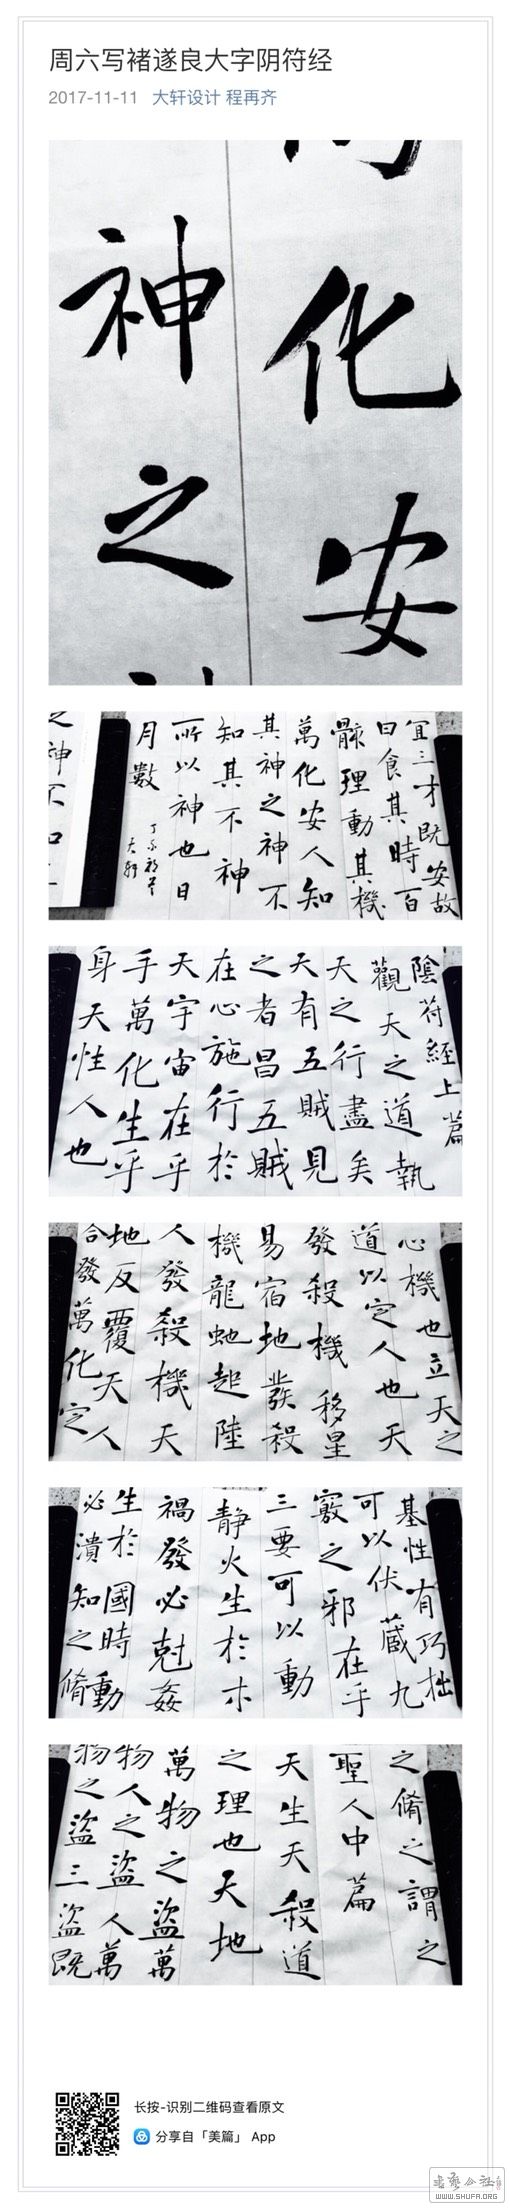 周六写褚遂良大字阴符经
2017-11-11 大轩设计 程再齐
化安
神之
宜三才既安故
曰食其時百
骸理動其機
萬化安人知
其神之神不
知其不神
所以神也日
月數
大軒
之神不知
陰符經上篇
觀天之道執
天之行盡矣
天有五賊見
之者昌五賊
在心施行於
天宇宙在乎
手萬化生乎
身天性人也
心機也立天之
道以定人也天
發殺機移星
易宿地發殺
機龍虵起陸
人發殺機天
地反覆天人
合發萬化定
基性有巧拙
可以伏藏九
竅之邪在乎
三要可以動
靜火生於木
禍發必尅姦
生於國時動
必潰知之脩
之脩之謂之
聖人中篇
天生天殺道
之理也天地
萬物之盜萬
物人之盜人萬
物之盜三盜既
长按-识别二维码查看原文
分享自「美篇」 App
WWW.SHUFA.ORG